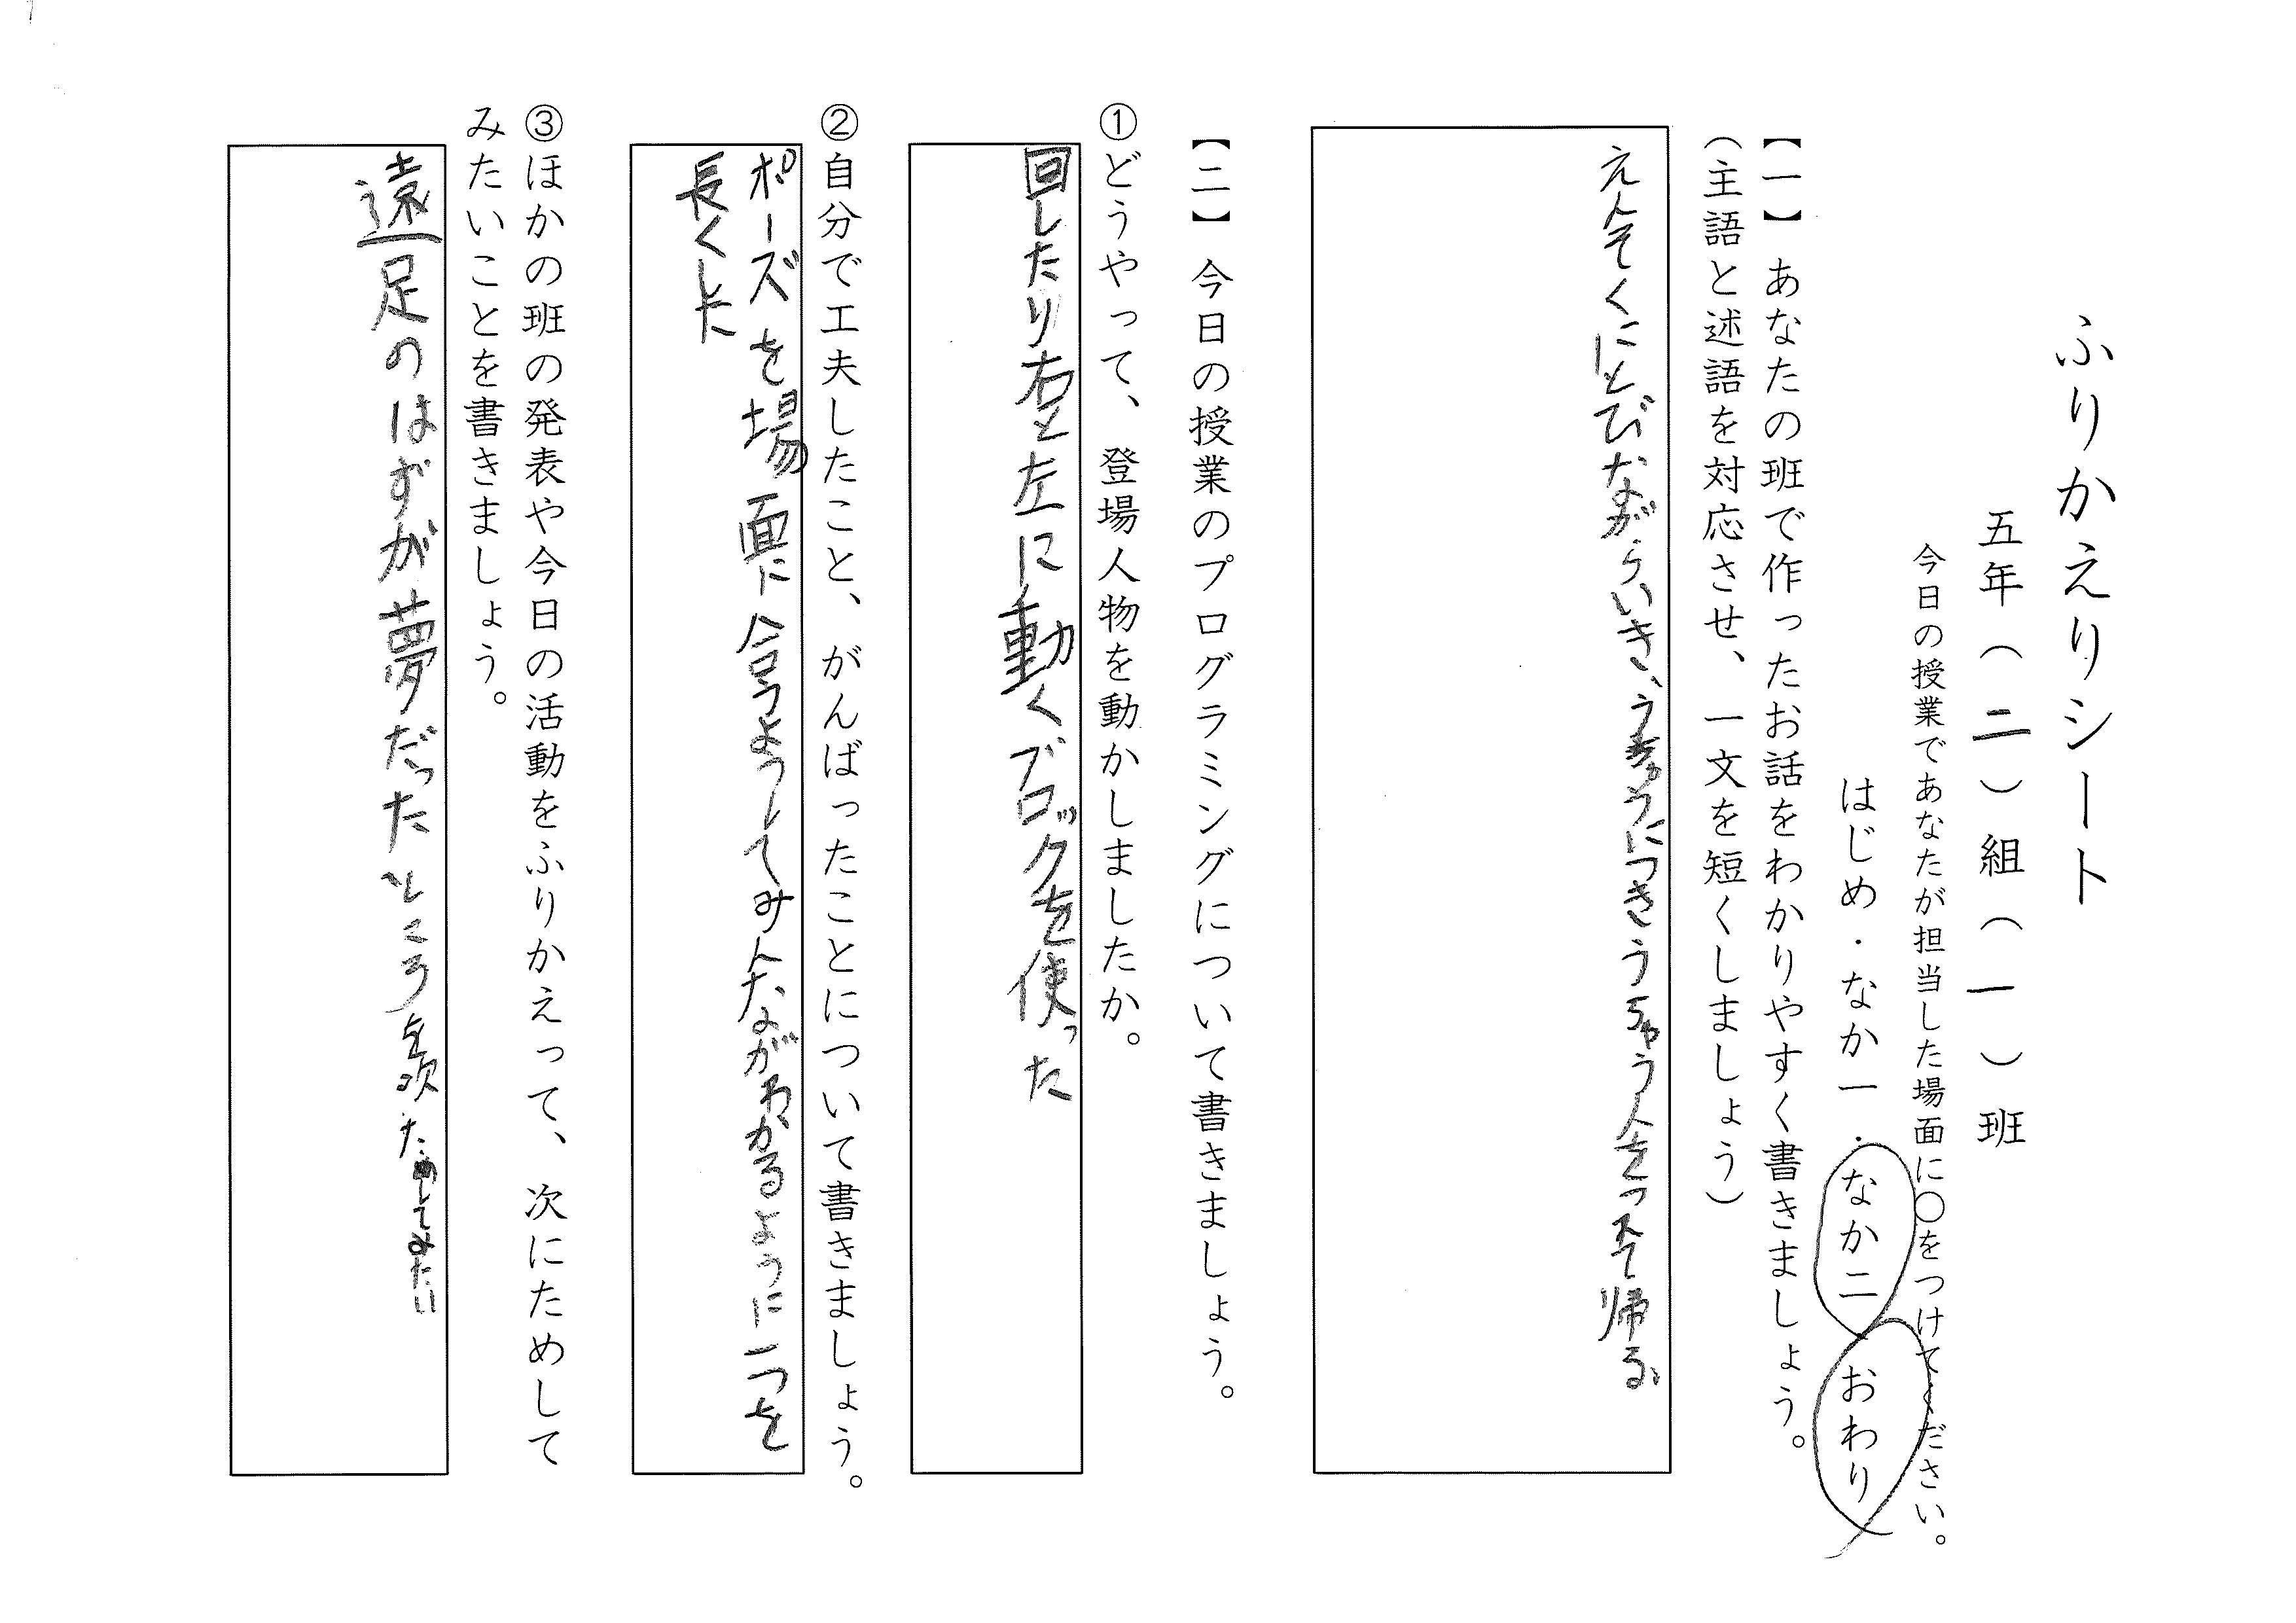 ふりかえりシート
五年（二）組（一）班
今日の授業であなたが担当した場面に〇をつけてください。
はじめ・なか一・なか二・おわり
【一】あなたの班で作ったお話をわかりやすく書きましょう。
（主語と述語を対応させ、一文を短くしましょう）
えんそくにとびながらいき、うちゅうにつきうちゅう人をつれて帰る。
【二】今日の授業のプログラミングについて書きましょう。
①どうやって、登場人物を動かしましたか。
回したり右と左に動くブロックを使った
②自分で工夫したこと、がんばったことについて書きましょう。
ポーズを場面に合うようしてみんながわかるように一つを
長くした
③ほかの班の発表や今日の活動をふりかえって、次にためして
みたいことを書きましょう。
遠足のはずが夢だったところを次ためしてみたい